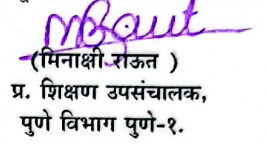 (मिनाक्षी राऊत )
प्र. शिक्षण उपसंचालक,
पुणे विभाग पुणे-१.